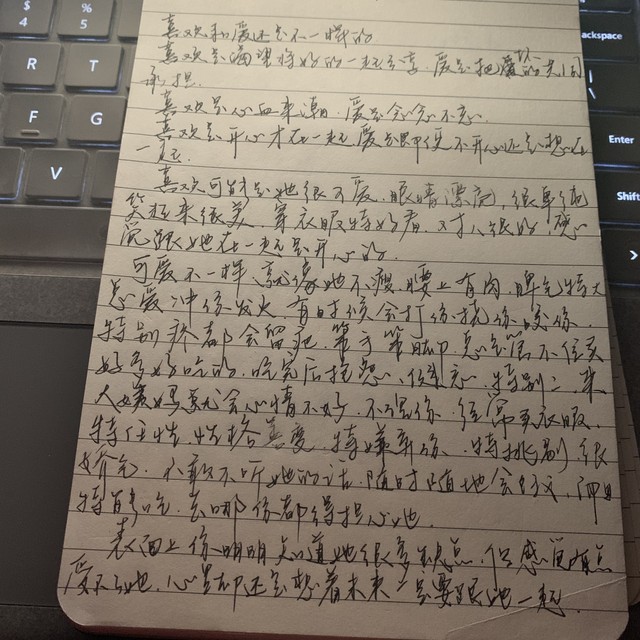 喜欢和爱还是不一样的
喜欢是渴望将好的一起分享,爱是把 的共同
承担.
喜欢是心血来潮,爱是念念不忘.
喜欢是开心才在一起,爱是即便不开心还是想在
一起.
喜欢可能是她很可爱,眼睛漂亮,很单纯
笑起来很美,穿衣服特好看,对人很好,感
觉跟她在一起是开心的.
可爱不一样,就像她不瘦,腰上有肉,脾气特大
总爱冲你发火,有时候会打你挠你咬你,
特别疼都会留疤,笨手笨脚,总是管不住买
好多好吃的,吃完后 特别二,来
大姨妈就会心情不好,不理你,经常买衣服,
特任性,性格善变,特嫌弃你,特挑剔,很
娇气,不敢不听她的话,随时随地会 而且
特 去哪你都得担心她.
表面上你明明知道她很多缺点,但感觉有点
爱不了她,心里却还是想着未来一定要跟她一起.
$
4
%
5
R
T
F
G
V
ackspace
Enter
Shift